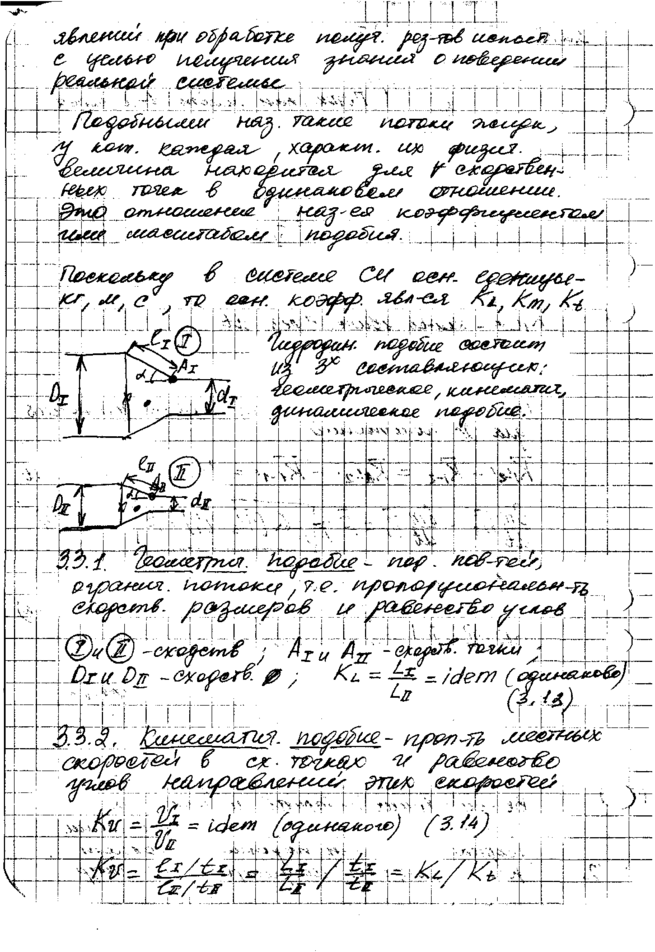 явлений при обработке получ. рез-тов испыт.
с целью получения знания о поведении
реальной системы
Подобными наз. такие потоки жидк,
у кот. каждая, характ. их физич.
величина находится для ∀ сходствен-
ных точек в одинаковом отношении.
Это отношение наз-ся коэффициентом
или масштабом подобия.
Поскольку в системе СИ осн. еденицы-
кг, м, с, то осн. коэфф. явл-ся KL, Km, Kt
Гидродин. подобие состоит
из 3х составляющих:
геометрическое, кинематич,
динамическое подобие.
lI I
AI
α
DI
dI
lII II
AII
α
DII
dII
3.3.1. Геометрич. подобие - под. пов-тей,
огранич. потоки, т.е. пропорциональн-ть
сходств. размеров и равенство углов
I и II - сходств ; AI и AII - сходств. точки ;
DI и DII - сходств. ; KL = LI/LII = idem (одинаково)
(3.13)
3.3.2. Кинематич. подобие - проп-ть местных
скоростей в сх. точках и равенство
углов направлений этих скоростей
Kv = VI/VII = idem (одинакого) (3.14)
Kv = (lI/tI)/(lII/tII) = LI/LII / tI/tII = KL/Kt